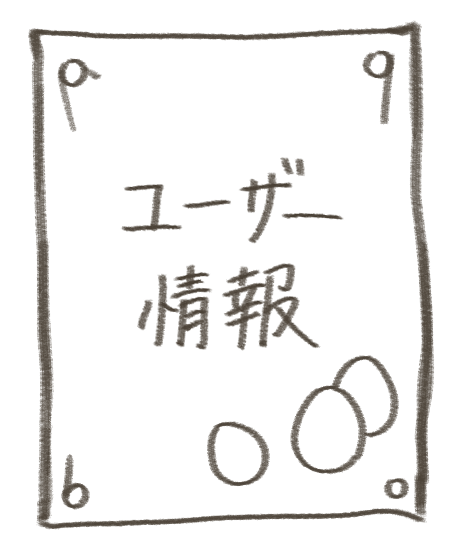 ユーザー
情報